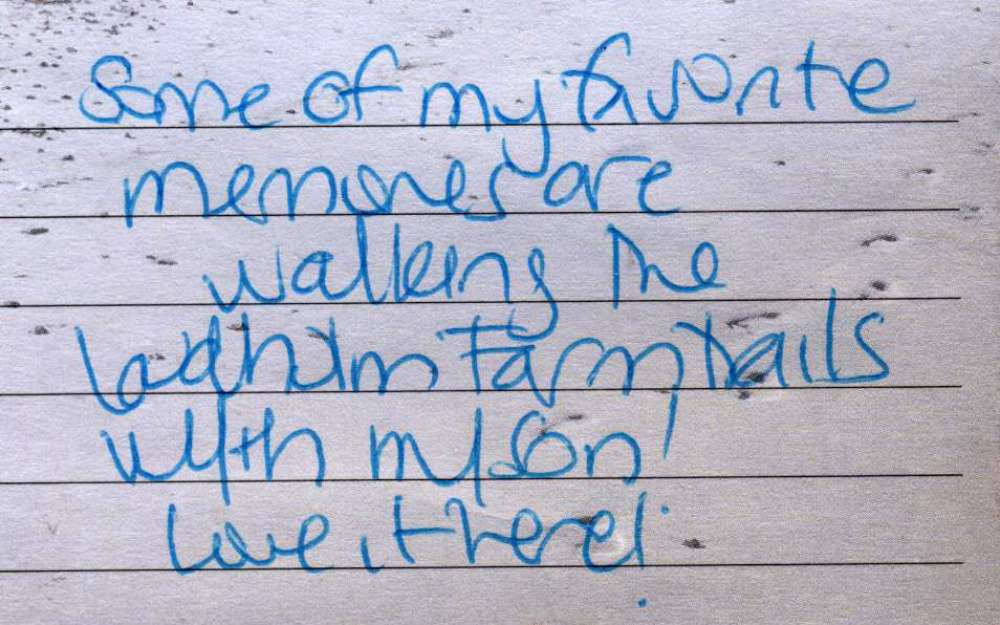 Some of my favorite
memories are
walking the
Farm trails
with my son!
Love it there!